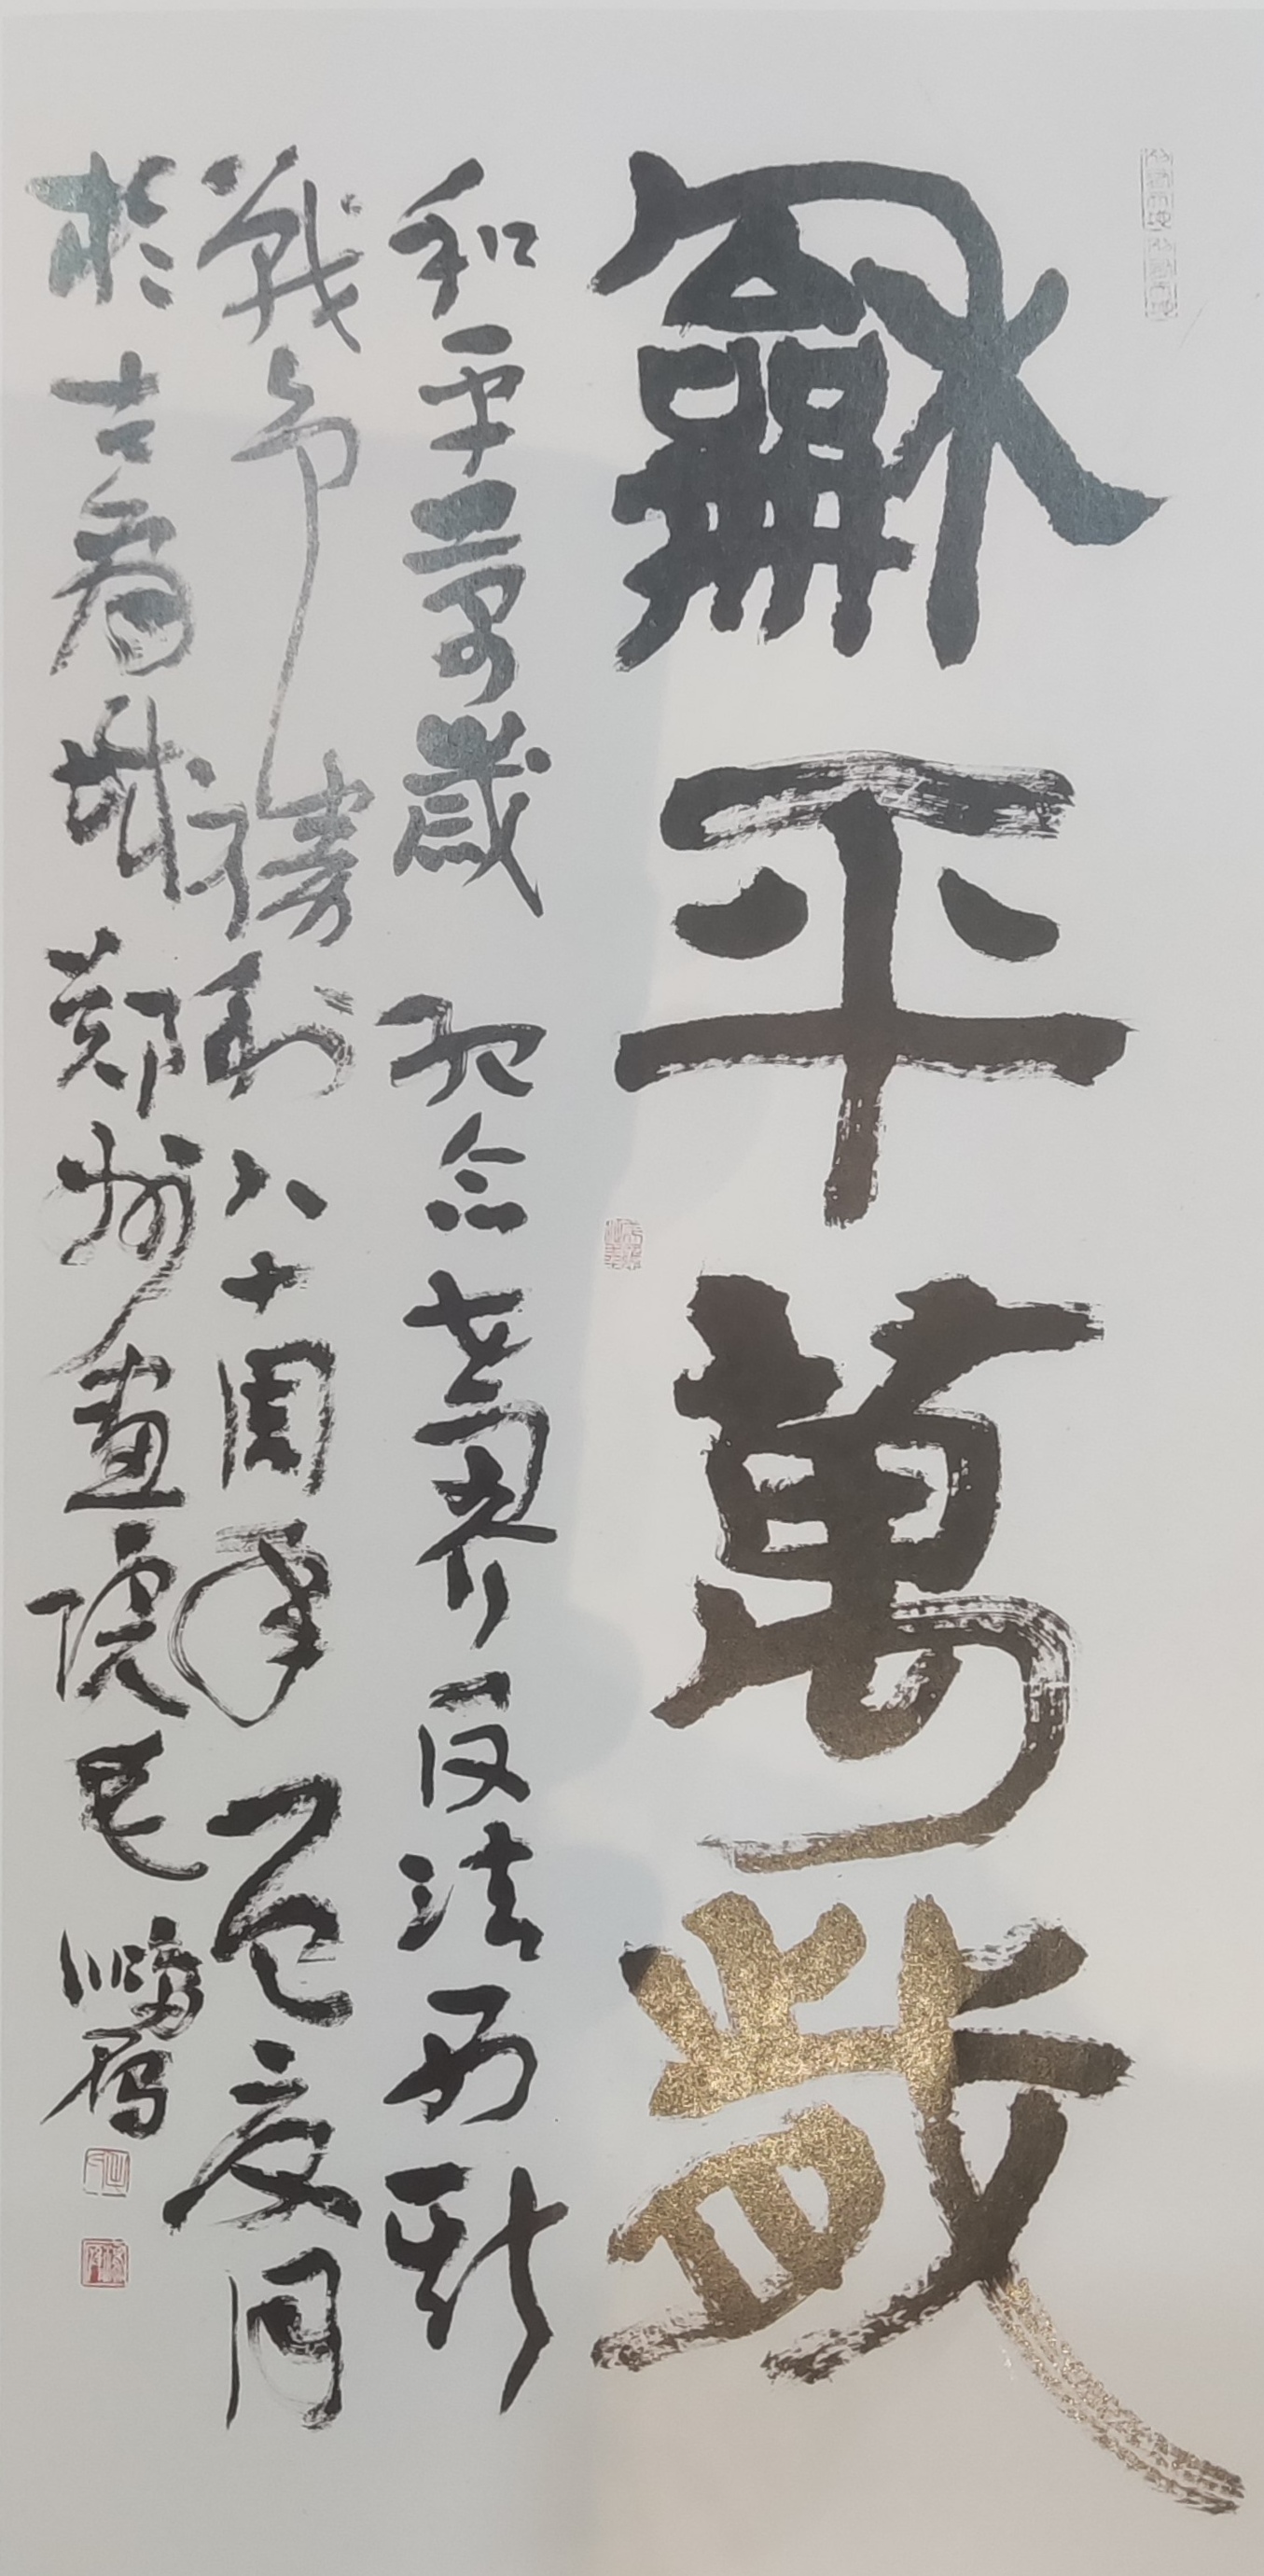 龢平萬歲
和平萬歲 紀念世界反法西斯
戰爭勝利八十周年 乙巳夏月
於古商城鄭州畫院毛